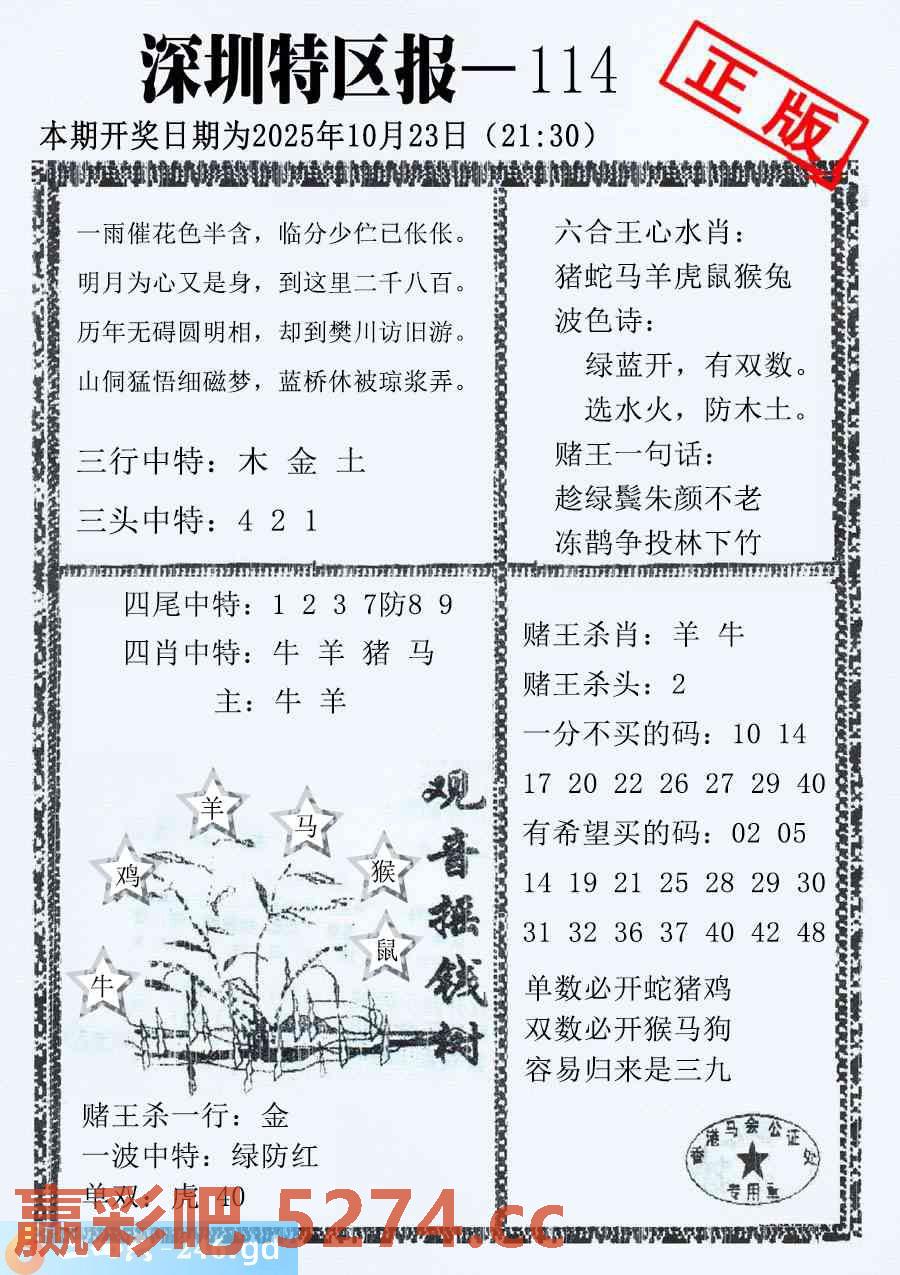 深圳特区报—114
正版
本期开奖日期为2025年10月23日（21:30）
一雨催花色半含，临分少伫已伥伥。
明月为心又是身，到这里二千八百。
历年无碍圆明相，却到樊川访旧游。
山侗猛悟细磁梦，蓝桥休被琼浆弄。
三行中特：木 金 土
三头中特：4 2 1
六合王心水肖：
猪蛇马羊虎鼠猴兔
波色诗：
绿蓝开，有双数。
选水火，防木土。
赌王一句话：
趁绿鬓朱颜不老
冻鹊争投林下竹
四尾中特：1 2 3 7防8 9
四肖中特：牛 羊 猪 马
主：牛 羊
羊
马
鸡
猴
鼠
牛
观音摇钱树
赌王杀一行：金
一波中特：绿防红
单双：虎 40
赌王杀肖：羊 牛
赌王杀头：2
一分不买的码：10 14
17 20 22 26 27 29 40
有希望买的码：02 05
14 19 21 25 28 29 30
31 32 36 37 40 42 48
单数必开蛇猪鸡
双数必开猴马狗
容易归来是三九
香港马会公证处
专用章
赢彩吧 5274.cc